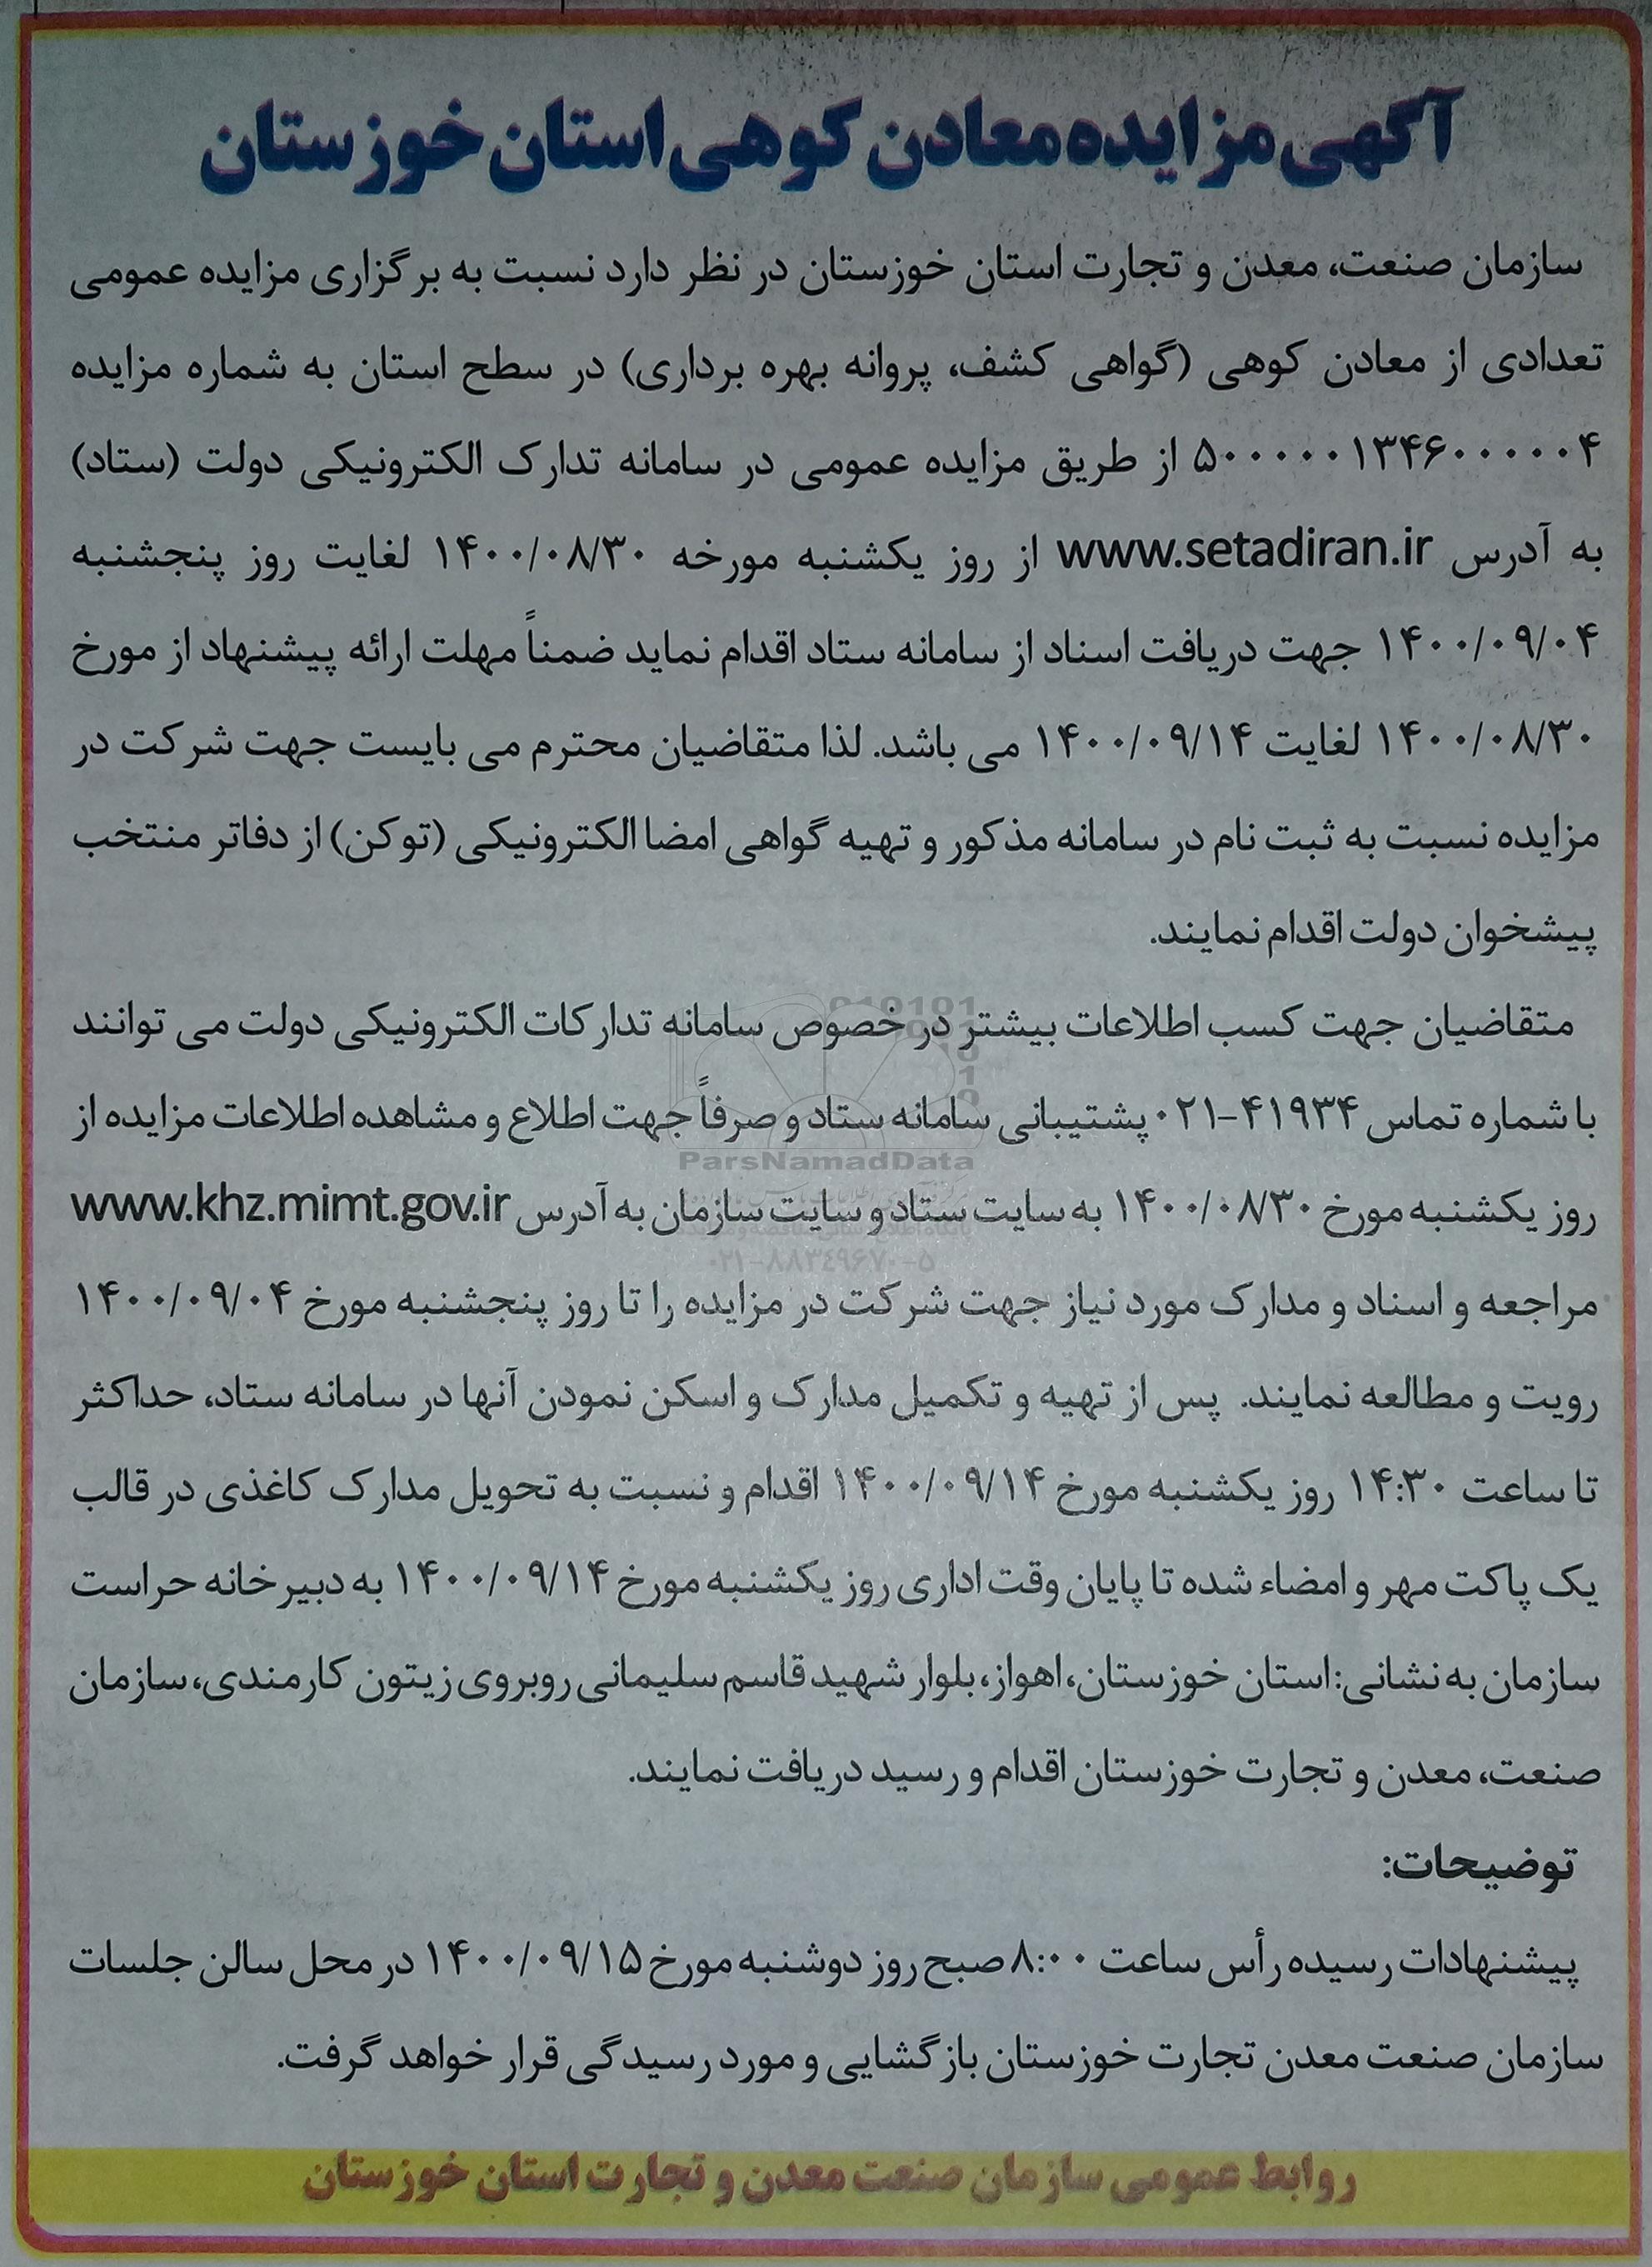 آگهی مزایده معادن کوهی استان خوزستان
سازمان صنعت، معدن و تجارت استان خوزستان در نظر دارد نسبت به برگزاری مزایده عمومی
تعدادی از معادن کوهی (گواهی کشف، پروانه بهره برداری) در سطح استان به شماره مزایده
۵۰۰۰۰۰۱۳۴۶۰۰۰۰۰۴ از طریق مزایده عمومی در سامانه تدارک الکترونیکی دولت (ستاد)
به آدرس www.setadiran.ir از روز یکشنبه مورخه ۱۴۰۰/۰۸/۳۰ لغایت روز پنجشنبه
۱۴۰۰/۰۹/۰۴ جهت دریافت اسناد از سامانه ستاد اقدام نماید ضمناً مهلت ارائه پیشنهاد از مورخ
۱۴۰۰/۰۸/۳۰ لغایت ۱۴۰۰/۰۹/۱۴ می باشد. لذا متقاضیان محترم می بایست جهت شرکت در
مزایده نسبت به ثبت نام در سامانه مذکور و تهیه گواهی امضا الکترونیکی (توکن) از دفاتر منتخب
پیشخوان دولت اقدام نمایند.
متقاضیان جهت کسب اطلاعات بیشتر در خصوص سامانه تدارکات الکترونیکی دولت می توانند
با شماره تماس ۴۱۹۳۴-۰۲۱ پشتیبانی سامانه ستاد و صرفاً جهت اطلاع و مشاهده اطلاعات مزایده از
ParsNamadData
روز یکشنبه مورخ ۱۴۰۰/۰۸/۳۰ به سایت ستاد و سایت سازمان به آدرس www.khz.mimt.gov.ir
۰۲۱-۸۸۳۴۹۶۷۰-۵
مراجعه و اسناد و مدارک مورد نیاز جهت شرکت در مزایده را تا روز پنجشنبه مورخ ۱۴۰۰/۰۹/۰۴
رویت و مطالعه نمایند. پس از تهیه و تکمیل مدارک و اسکن نمودن آنها در سامانه ستاد، حداکثر
تا ساعت ۱۴:۳۰ روز یکشنبه مورخ ۱۴۰۰/۰۹/۱۴ اقدام و نسبت به تحویل مدارک کاغذی در قالب
یک پاکت مهر و امضاء شده تا پایان وقت اداری روز یکشنبه مورخ ۱۴۰۰/۰۹/۱۴ به دبیرخانه حراست
سازمان به نشانی: استان خوزستان، اهواز، بلوار شهید قاسم سلیمانی روبروی زیتون کارمندی، سازمان
صنعت، معدن و تجارت خوزستان اقدام و رسید دریافت نمایند.
توضیحات:
پیشنهادات رسیده رأس ساعت ۸:۰۰ صبح روز دوشنبه مورخ ۱۴۰۰/۰۹/۱۵ در محل سالن جلسات
سازمان صنعت معدن تجارت خوزستان بازگشایی و مورد رسیدگی قرار خواهد گرفت.
روابط عمومی سازمان صنعت معدن و تجارت استان خوزستان